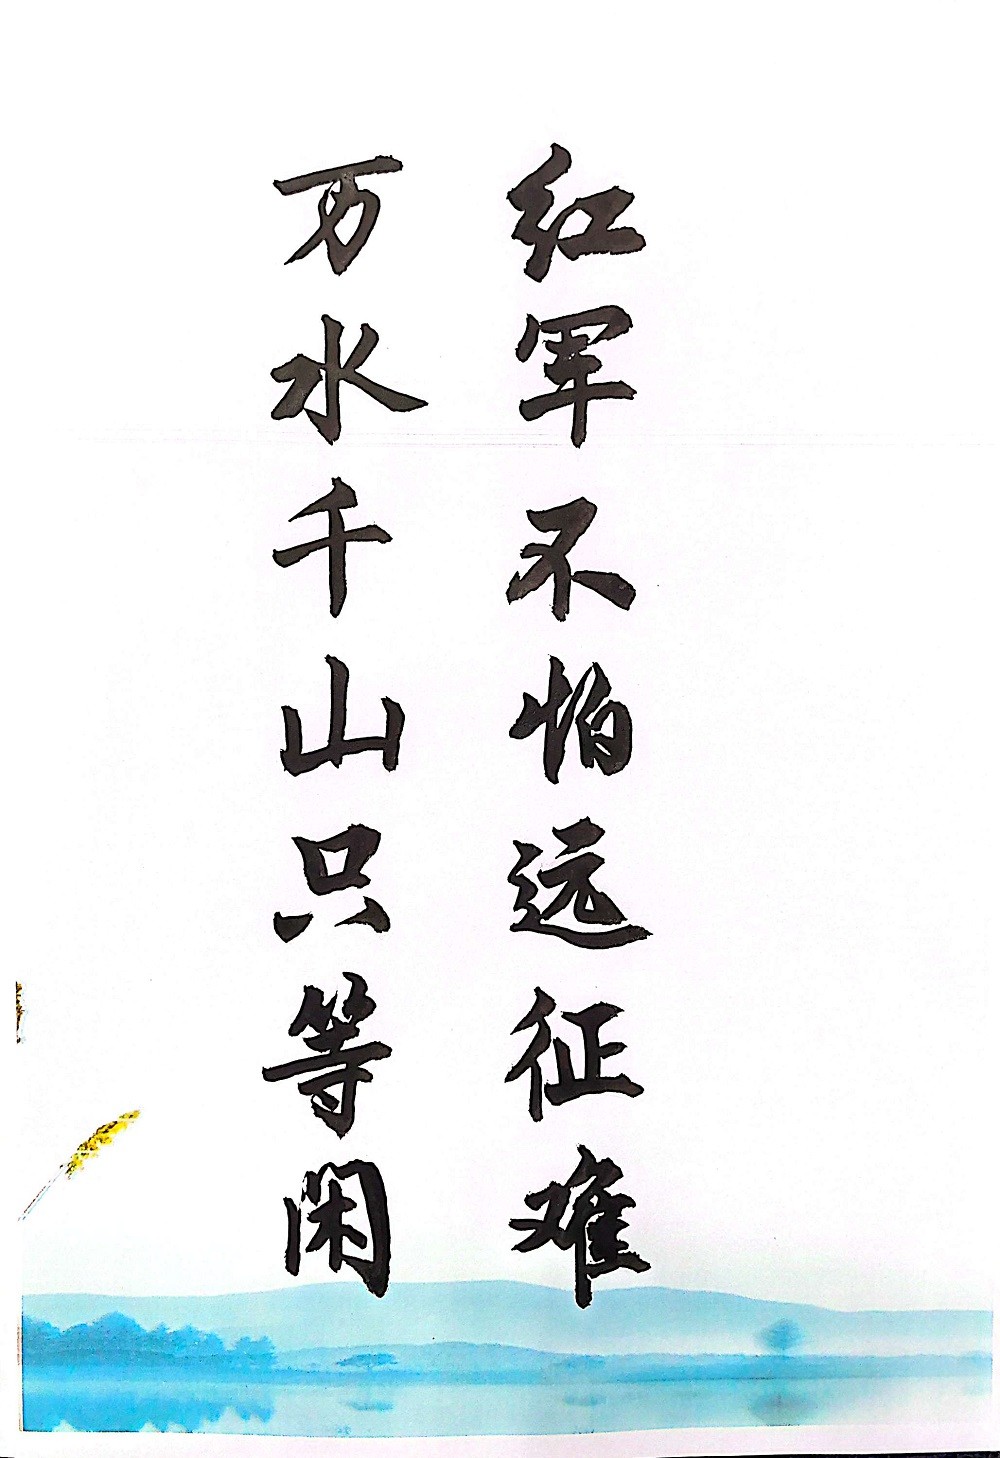 红军不怕远征难
万水千山只等闲